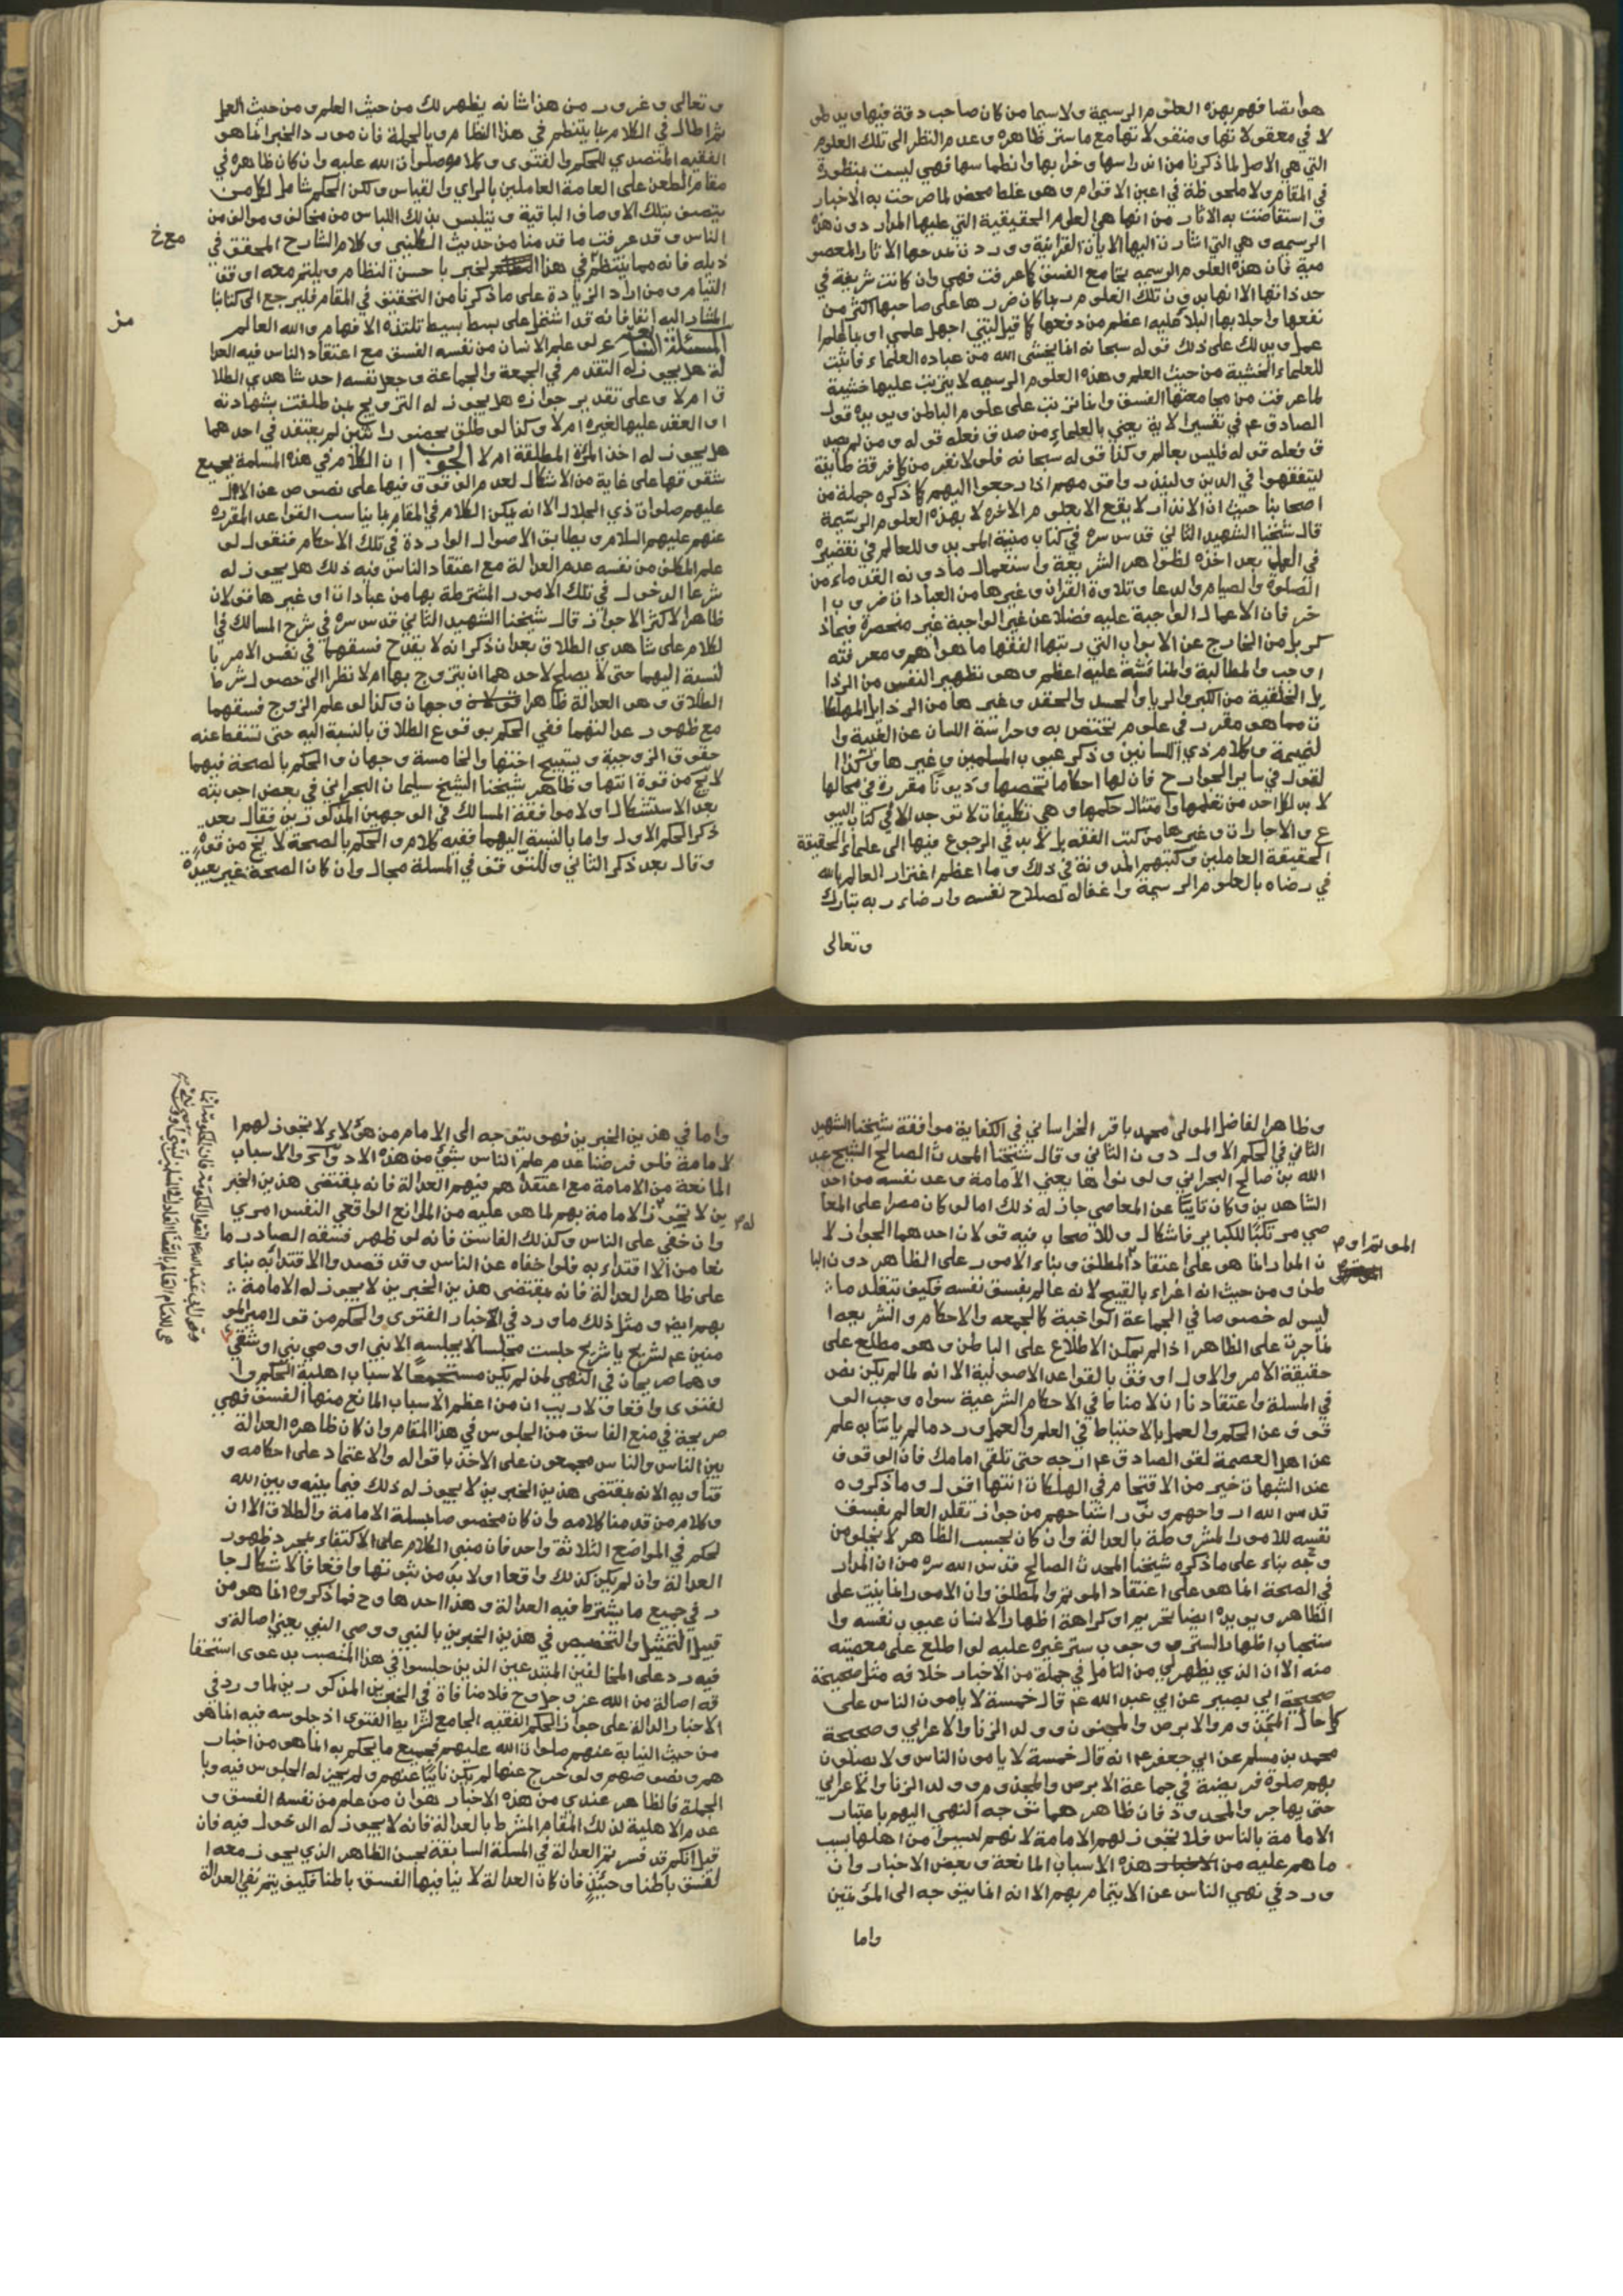 هو اتصافهم بهذه العلوم الرسمية ولا سيما من كان صاحب دقة فيها ويد طو
لا في معقولاتها ومنقولاتها مع ما ستر ظاهره وعدم النظر الى تلك العلوم
التي هي الاصل لما ذكرنا من اندراسها وخرابها وانطماسها فهي ليست منظورة
في المقام ولا ملحوظة في اعين الاقوام وهو غلط محض لما صرحت به الاخبار
واستفاضت به الاثار من انها هي العلوم الحقيقية التي عليها المدار دون هذه
الرسميه وهي التي اشارت اليها الايات القرانية ووردت بمدحها الاثار المعصو
مية فان هذه العلوم الرسميه تجامع الفسق كما عرفت فهي وان كانت شريفة في
حد ذاتها الا انها بدون تلك العلوم ربما كان ضررها على صاحبها اكثر من
نفعها واجلابها البلاء عليه اعظم من دفعها كما قيل ليتني اجهل علمي او بالعلم ا
عمل ويدلك على ذلك قوله سبحانه انما يخشى الله من عباده العلماء فاثبت
للعلماء الخشية من حيث العلم وهذه العلوم الرسميه لا يترتب عليها خشية
لما عرفت من مجامعتها الفسق وانما تترتب على علوم الباطن ويويده قول
الصادق ع في تفسير الاية يعني بالعلماء من صدق فعله قوله ومن لم يصد
ق فعله قوله فليس بعالم وكذا قوله سبحانه فلولا نفر من كل فرقة طايفة
ليتفقهوا في الدين ولينذروا قومهم اذا رجعوا اليهم كما ذكره جملة من
اصحابنا حيث ان الانذار لا يقع الا بعلوم الاخره لا بهذه العلوم الرسمية
قال شيخنا الشهيد الثاني قدس سره في كتاب منية المريد وللعالم في تقصيره
في العلم بعد اخذه لظواهر الشريعة واستعمال ما دونه القدماء من
الصلوة والصيام والدعا وتلاوة القران وغيرها من العبادات ضروب ا
خر فان الاعمال الواجبة عليه فضلا عن غير الواجبة غير منحصرة فيما ذ
كر بل من الخارج عن الابواب التي رتبها الفقها ما هو اهم ومعرفته
اوجب والمطالبة والمناقشة عليه اعظم وهو تطهير النفس من الرذا
يل الخلقية من الكبر والريا والحسد والحقد وغيرها من الرذايل المهلكا
ت مما هو مقرر في علوم تختص به وحراسة اللسان عن الغيبة وا
لنميمة وكلام ذي اللسانين وذكر عيوب المسلمين وغيرها وكذا ا
لقول في ساير الجوارح فان لها احكاما تخصها وذنوبا مقررة في محالها
لا بد لكل احد من تعلمها وامتثال حكمها وهي تكليفات لا توجد الا في كتاب البيو
ع والاجارات وغيرها من كتب الفقه بل لا بد في الرجوع فيها الى علماء الحقيقة
الحقيقة العاملين وكتبهم المدونة في ذلك وما اعظم اغترار العالم بالله
في رضاه بالعلوم الرسمية واغفاله لصلاح نفسه وارضاء ربه تبارك
وتعالى
وتعالى وغرور من هذا شانه يظهر لك من حيث العلم ومن حيث العمل
ثم اطال في الكلام بما ينتظم في هذا النظام وبالجملة فان مورد الخبر انما هو
الفقيه المتصدي للحكم والفتوى وكلامه صلوات الله عليه وان كان ظاهره في
مقام الطعن على العامة العاملين بالراي والقياس ولكن الحكم شامل لكل من
يتصف بتلك الاوصاف الباقية ويتلبس بذلك اللباس من مخالف وموالف من
الناس وقد عرفت ما قدمنا من حديث الكليني وكلام الشارح المحقق في
ذيله فانه مما ينتظم في هذا الخبر باحسن النظام ويلتم معه اوفق
مع خ
التيام ومن اراد الزيادة على ما ذكرنا من التحقيق في المقام فليرجع الى كتابنا
المشار اليه انفا فانه قد اشتمل على بسط بسيط تلتذه الافهام والله العالم
مز
المسئلة الثامنة لو علم الانسان من نفسه الفسق مع اعتقاد الناس فيه العدا
لة هل يجوز له التقدم في الجمعة والجماعة وجعل نفسه احد شاهدي الطلا
ق ام لا وعلى تقدير جوازه هل يجوز له التزويج بمن طلقت بشهادته
او العقد عليها لغيره ام لا وكذا لو طلق بحضور اثنين لم يعتقد في احدهما
هل يجوز له اخذ المرة المطلقة ام لا الجواب ان الكلام في هذه المسئلة بجميع
شقوقها على غاية من الاشكال لعدم الوقوف فيها على نصوص عن الال
عليهم صلوات ذي الجلال الا انه يمكن الكلام في المقام بما يناسب القواعد المقرره
عنهم عليهم السلام ويطابق الاصول الواردة في تلك الاحكام فنقول لو
علم المكلف من نفسه عدم العدالة مع اعتقاد الناس فيه ذلك هل يجوز له
شرعا الدخول في تلك الامور المشترطة بها من عبادات او غيرها قولان
ظاهر الاكثر الاجواز قال شيخنا الشهيد الثاني قدس سره في شرح المسالك في ا
لكلام على شاهدي الطلاق بعد ان ذكر انه لا يقدح فسقهما في نفس الامر با
لنسبة اليهما حتى لا يصلح لاحدهما ان يتزوج بها ام لا نظرا الى حصول شرط
الطلاق وهو العدالة ظاهرا وجهان وكذا لو علم الزوج فسقهما
مع ظهور عدالتهما ففي الحكم بوقوع الطلاق بالنسبة اليه حتى تسقط عنه
حقوق الزوجية ويستبيح اختها والخامسة وجهان والحكم بالصحة فيهما
لا يخ من قوة انتهى وظاهر شيخنا الشيخ سليمان البحراني في بعض اجوبته
بعد الاستشكال اولا موافقة المسالك في الوجهين المذكورين فقال بعد
ذكر الحكم الاول واما بالنسبة اليهما ففيه كلام والحكم بالصحة لا يخ من قوة
وقال بعد ذكر الثاني وللتوقف في المسلة مجال وان كان الصحة غير بعيدة
وظاهر الفاضل المولى محمد باقر الخراساني في الكفاية موافقة شيخنا الشهيد
الثاني في الحكم الاول دون الثاني وقال شيخنا المحدث الصالح الشيخ عبد
الله بن صالح البحراني ولو نواها يعني الامامة وعد نفسه من احد
الشاهدين وكان تايبا عن المعاصي جاز له ذلك اما لو كان مصرا على المعا
صي مرتكبا للكباير فاشكال وللاصحاب فيه قولان احدهما الجواز لا
ن المدار انما هو على اعتقاد المطلق وبناء الامور على الظاهر دون البا
الموتم او
طن ومن حيث انه اغراء بالقبيح لانه عالم بفسق نفسه فكيف يتقلد ما
ليس له خصوصا في الجماعة الواجبة كالجمعه والاحكام والشريعه ا
نما جرت على الظاهر اذا لم يمكن الاطلاع على الباطن وهو مطلع على
حقيقة الامر والاول اوفق بالقواعد الاصولية الا انه لما لم يكن نص
في المسلة واعتقادنا ان لا مناط في الاحكام الشرعية سواه وجب الو
قوف عن الحكم والعمل بالاحتياط في العلم والعمل ورد ما لم ياتنا به علم
عن اهل العصمة لقول الصادق ع ارجه حتى تلقى امامك فان الوقوف
عند الشبهات خير من الاقتحام في الهلكات انتها اقول وما ذكروه
قدس الله ارواحهم ونور اشباحهم من جواز تقلد العالم بفسق
نفسه للامور المشروطة بالعدالة وان كان بحسب الظاهر لا يخلو من
وجه بناء على ما ذكره شيخنا المحدث الصالح قدس الله سره من ان المدار
في الصحة انما هو على اعتقاد الموتم والمطلق وان الامور انما بنيت على
الظاهر ويويده ايضا تحريم او كراهة اظهار الانسان عيوب نفسه وا
ستحباب اظهار الستر ووجوب ستر غيره عليه لو اطلع على معصيته
منه الا ان الذي يظهر لي من التامل في جملة من الاخبار خلافه مثل صحيحة
صحيحة ابي بصير عن ابي عبد الله ع قال خمسة لا يامون الناس على
كل حال المجذوم والابرص والمجنون وولد الزنا والاعرابي وصحيحة
محمد بن مسلم عن ابي جعفر ع انه قال خمسة لا يامون الناس ولا يصلون
بهم صلوة فريضة في جماعة الابرص والمجذوم وولد الزنا والاعرابي
حتى يهاجر والمحدود فان ظاهرهما توجه النهي اليهم باعتبار
الامامة بالناس فلا تجوز لهم الامامة لانهم ليسوا من اهلها بسبب
ما هم عليه من هذه الاسباب المانعة وبعض الاخبار وان
ورد في نهي الناس عن الايتمام بهم الا انه انما يتوجه الى المؤتمين
واما
واما في هذين الخبرين فهو يتوجه الى الامام من هؤلاء لا تجوز لهم ا
لامامة فلو فرضنا عدم علم الناس بشيء من هذه الادواء والاسباب
المانعة من الامامة مع اعتقادهم فيهم العدالة فانه بمقتضى هذين الخبر
ين لا تجوز الامامة بهم لما هو عليه من الموانع الواقعي النفس امري
لهم
وان خفي على الناس وكذلك الفاسق فانه لو ظهر فسقه الصادر ما
نعا من الاقتداء به فلو اخفاه عن الناس وقد قصدوا الاقتداء به بناء
على ظاهر العدالة فانه بمقتضى هذين الخبرين لا يجوز له الامامة
بهم ايضا ومثل ذلك ما ورد في الاخبار الفتوى والحكم من قول امير المو
منين ع لشريح يا شريح جلست مجلسا لا يجلسه الا نبي او وصي نبي او شقي
وهما صريحان في النهي لمن لم يكن مستجمعا لاسباب اهلية الحكم وا
لفتوى واقعا ولا ريب ان من اعظم الاسباب المانع منها الفسق فهي
صريحة في منع الفاسق من الجلوس في هذا المقام وان كان ظاهره العدالة
بين الناس والناس مجمعون على الاخذ باقواله والاعتماد على احكامه و
فتاويه الا انه بمقتضى هذين الخبرين لا يجوز له ذلك فيما بينه وبين الله
وكلام من قدمنا كلامه وان كان مخصوصا بمسلة الامامة والطلاق الا ان
لحكم في المواضع الثلاثة واحد فان مبنى الكلام على الاكتفاء بمجرد ظهور
العدالة وان لم يكن كذلك واقعا او لا بد من ثبوتها واقعا فالاشكال جا
ر في جميع ما يشترط فيه العدالة وهذا احدها وح فما ذكروه انما هو من
قبيل التمثيل والتخصيص في هذين الخبرين بالنبي ووصي النبي يعني اصالة و
فيه رد على المخالفين المبتدعين الذين جلسوا في هذا المنصب بدعوى استحقا
قه اصالة من الله عز وجل وح فلا منافاة في الخبرين المذكورين لما ورد في
الاخبار الدالة على جواز الحكم الفقيه الجامع لشرايط الفتوى اذ جلوسه فيه انما هو
من حيث النيابة عنهم صلوات الله عليهم فجميع ما يحكم به انما هو من اخبار
هم ونصوصهم ولو خرج عنها لم يكن نايبا عنهم ولم يجز له الجلوس فيه وبا
لجملة فالظاهر عندي من هذه الاخبار هو ان من علم من نفسه الفسق و
عدم الاهلية لذلك المقام المشترط بالعدالة فانه لا يجوز له الدخول فيه فان
قيل انكم قد فسرتم العدالة في المسلة السابقة بحسن الظاهر الذي يجوز معه ا
لفسق باطنا وحينئذ فان كان العدالة لا ينافيها الفسق باطنا فكيف يتم نفي العدالة
وقول ابي عبد الله ع اتقوا الحكومة فان الحكومة انما
هي للامام العالم بالقضاء العادل في المسلمين لنبي او وصي نبي